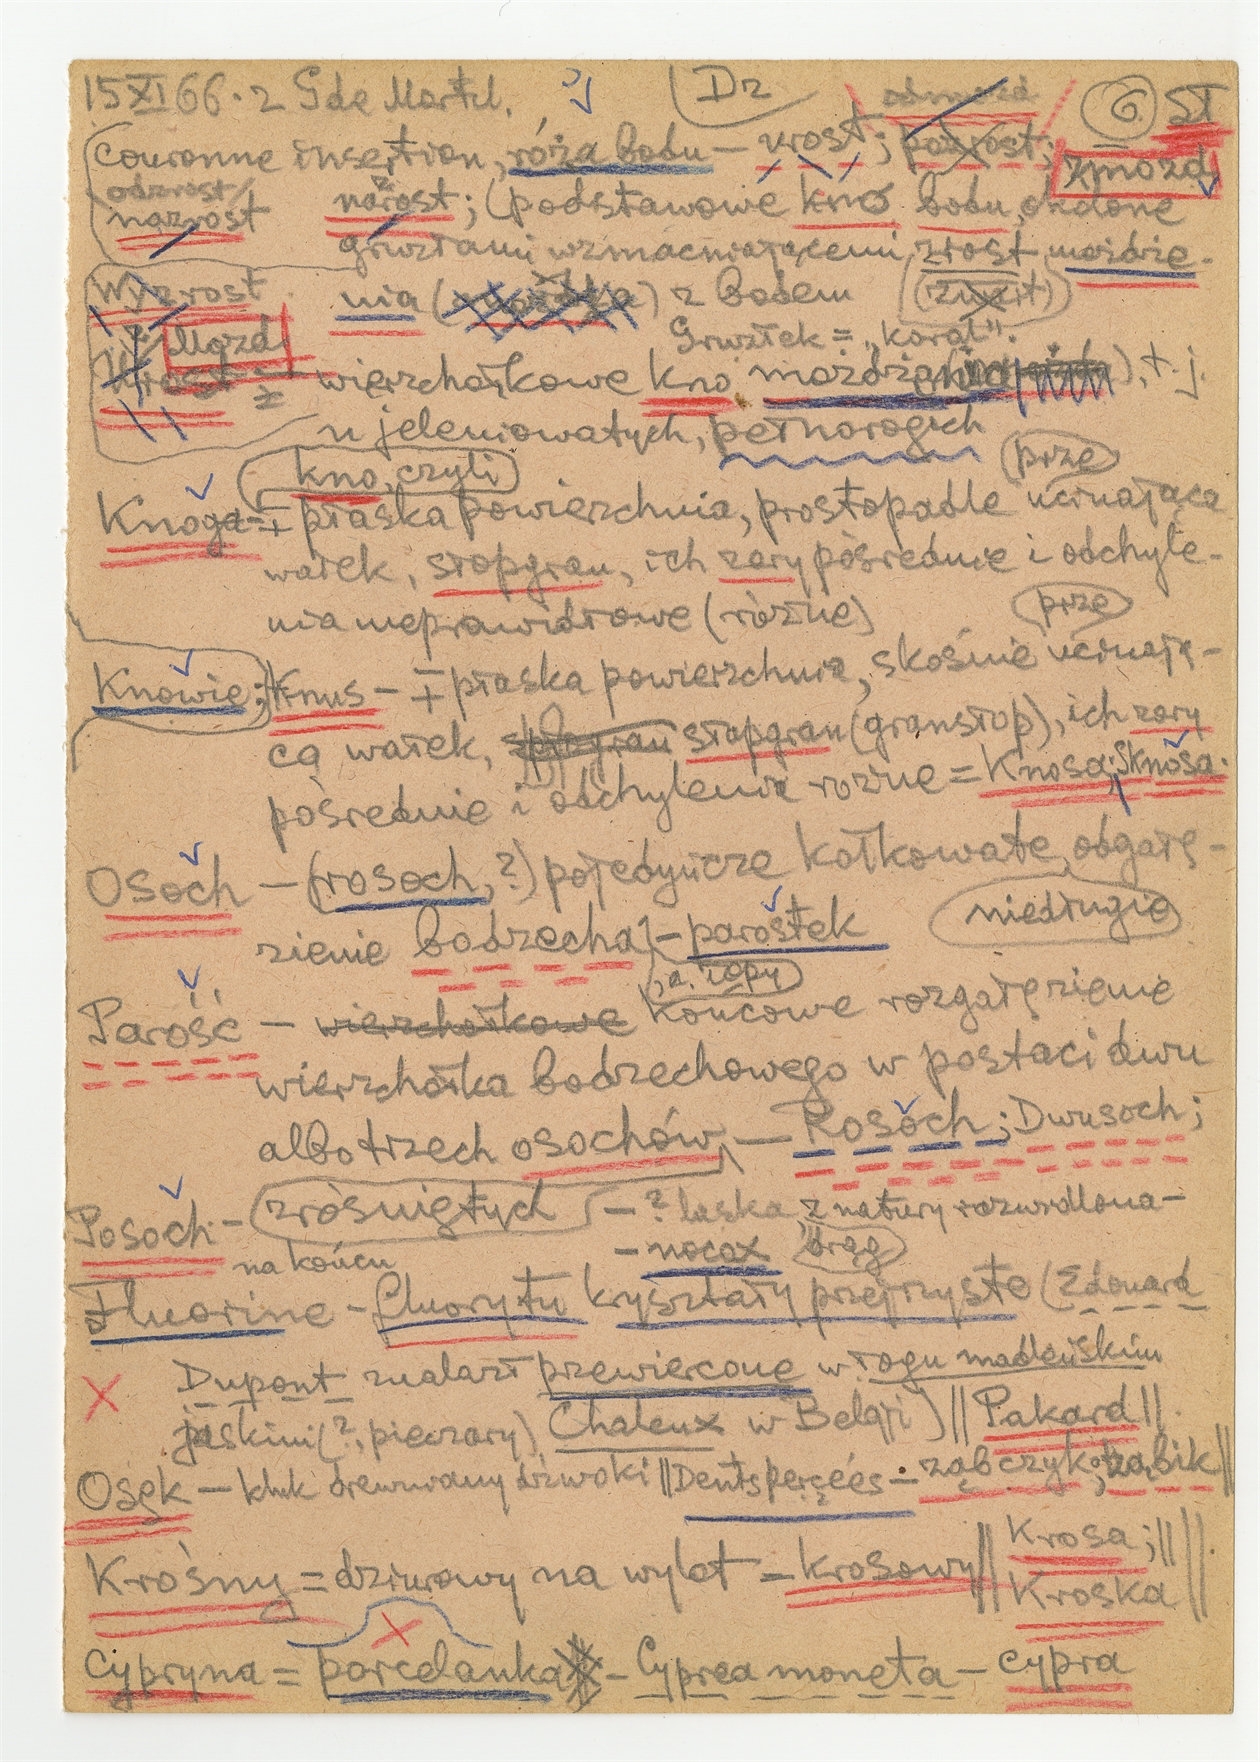 15 XI 66. z Gde Mortil. Dz 6 ST
couronne insertion, róża bodu – wrost; pozrost; zmozd
odzrost/ nazrost narost; (podstawowe kno bodu, okdone
gruzłami wzmacniającemi zrost możdże-
Wyzrost nia ( ) z bodem (zwart)
Mozd Gruzłek = „koral".
Wrost wierzchołkowe kno możdżenia ), t.j.
u jeleniowatych, pełnorogich
kno, czyli prze
Knoga = ∓ płaska powierzchnia, prostopadle ucinająca
wałek, słopgran, ich zary pośrednie i odchyle-
nia nieprawidłowe (różne) prze
Knowie; Knus – ∓ płaska powierzchnia, skośnie ucinają-
cą wałek, słopgran (gransłop), ich zary
pośrednie i odchylenia rożne = Knosa; Sknosa.
Osoch – (rosoch, ?) pojedyńcze kołkowate obgałę-
zienie bodzecha – parostek niedługie
, a. zopy
Parość – wierzchołkowe końcowe rozgałęzienie
wierzchołka bodzechowego w postaci dwu
albo trzech osochów – Rosoch; Dwusoch;
Posoch – zrośniętych – ? laska z natury rozwidlona
na końcu – nocax drąg
Fluorine – fluorytu kryształy przejrzyste (Edouard
Dupont znalazł przewiercone w łogu madleńskim
jaskini (?, pieczary) Chaleux w Belgji) || Pakard ||
Osęk – kluk drewniany dziwoki || Dents percées – ząbczyk; ząbik ||
Krośny = dziurowy na wylot = krosowy || Krosa; ||
Kroska ||
Cypryna = porcelanka – Cyprea moneta – cypra